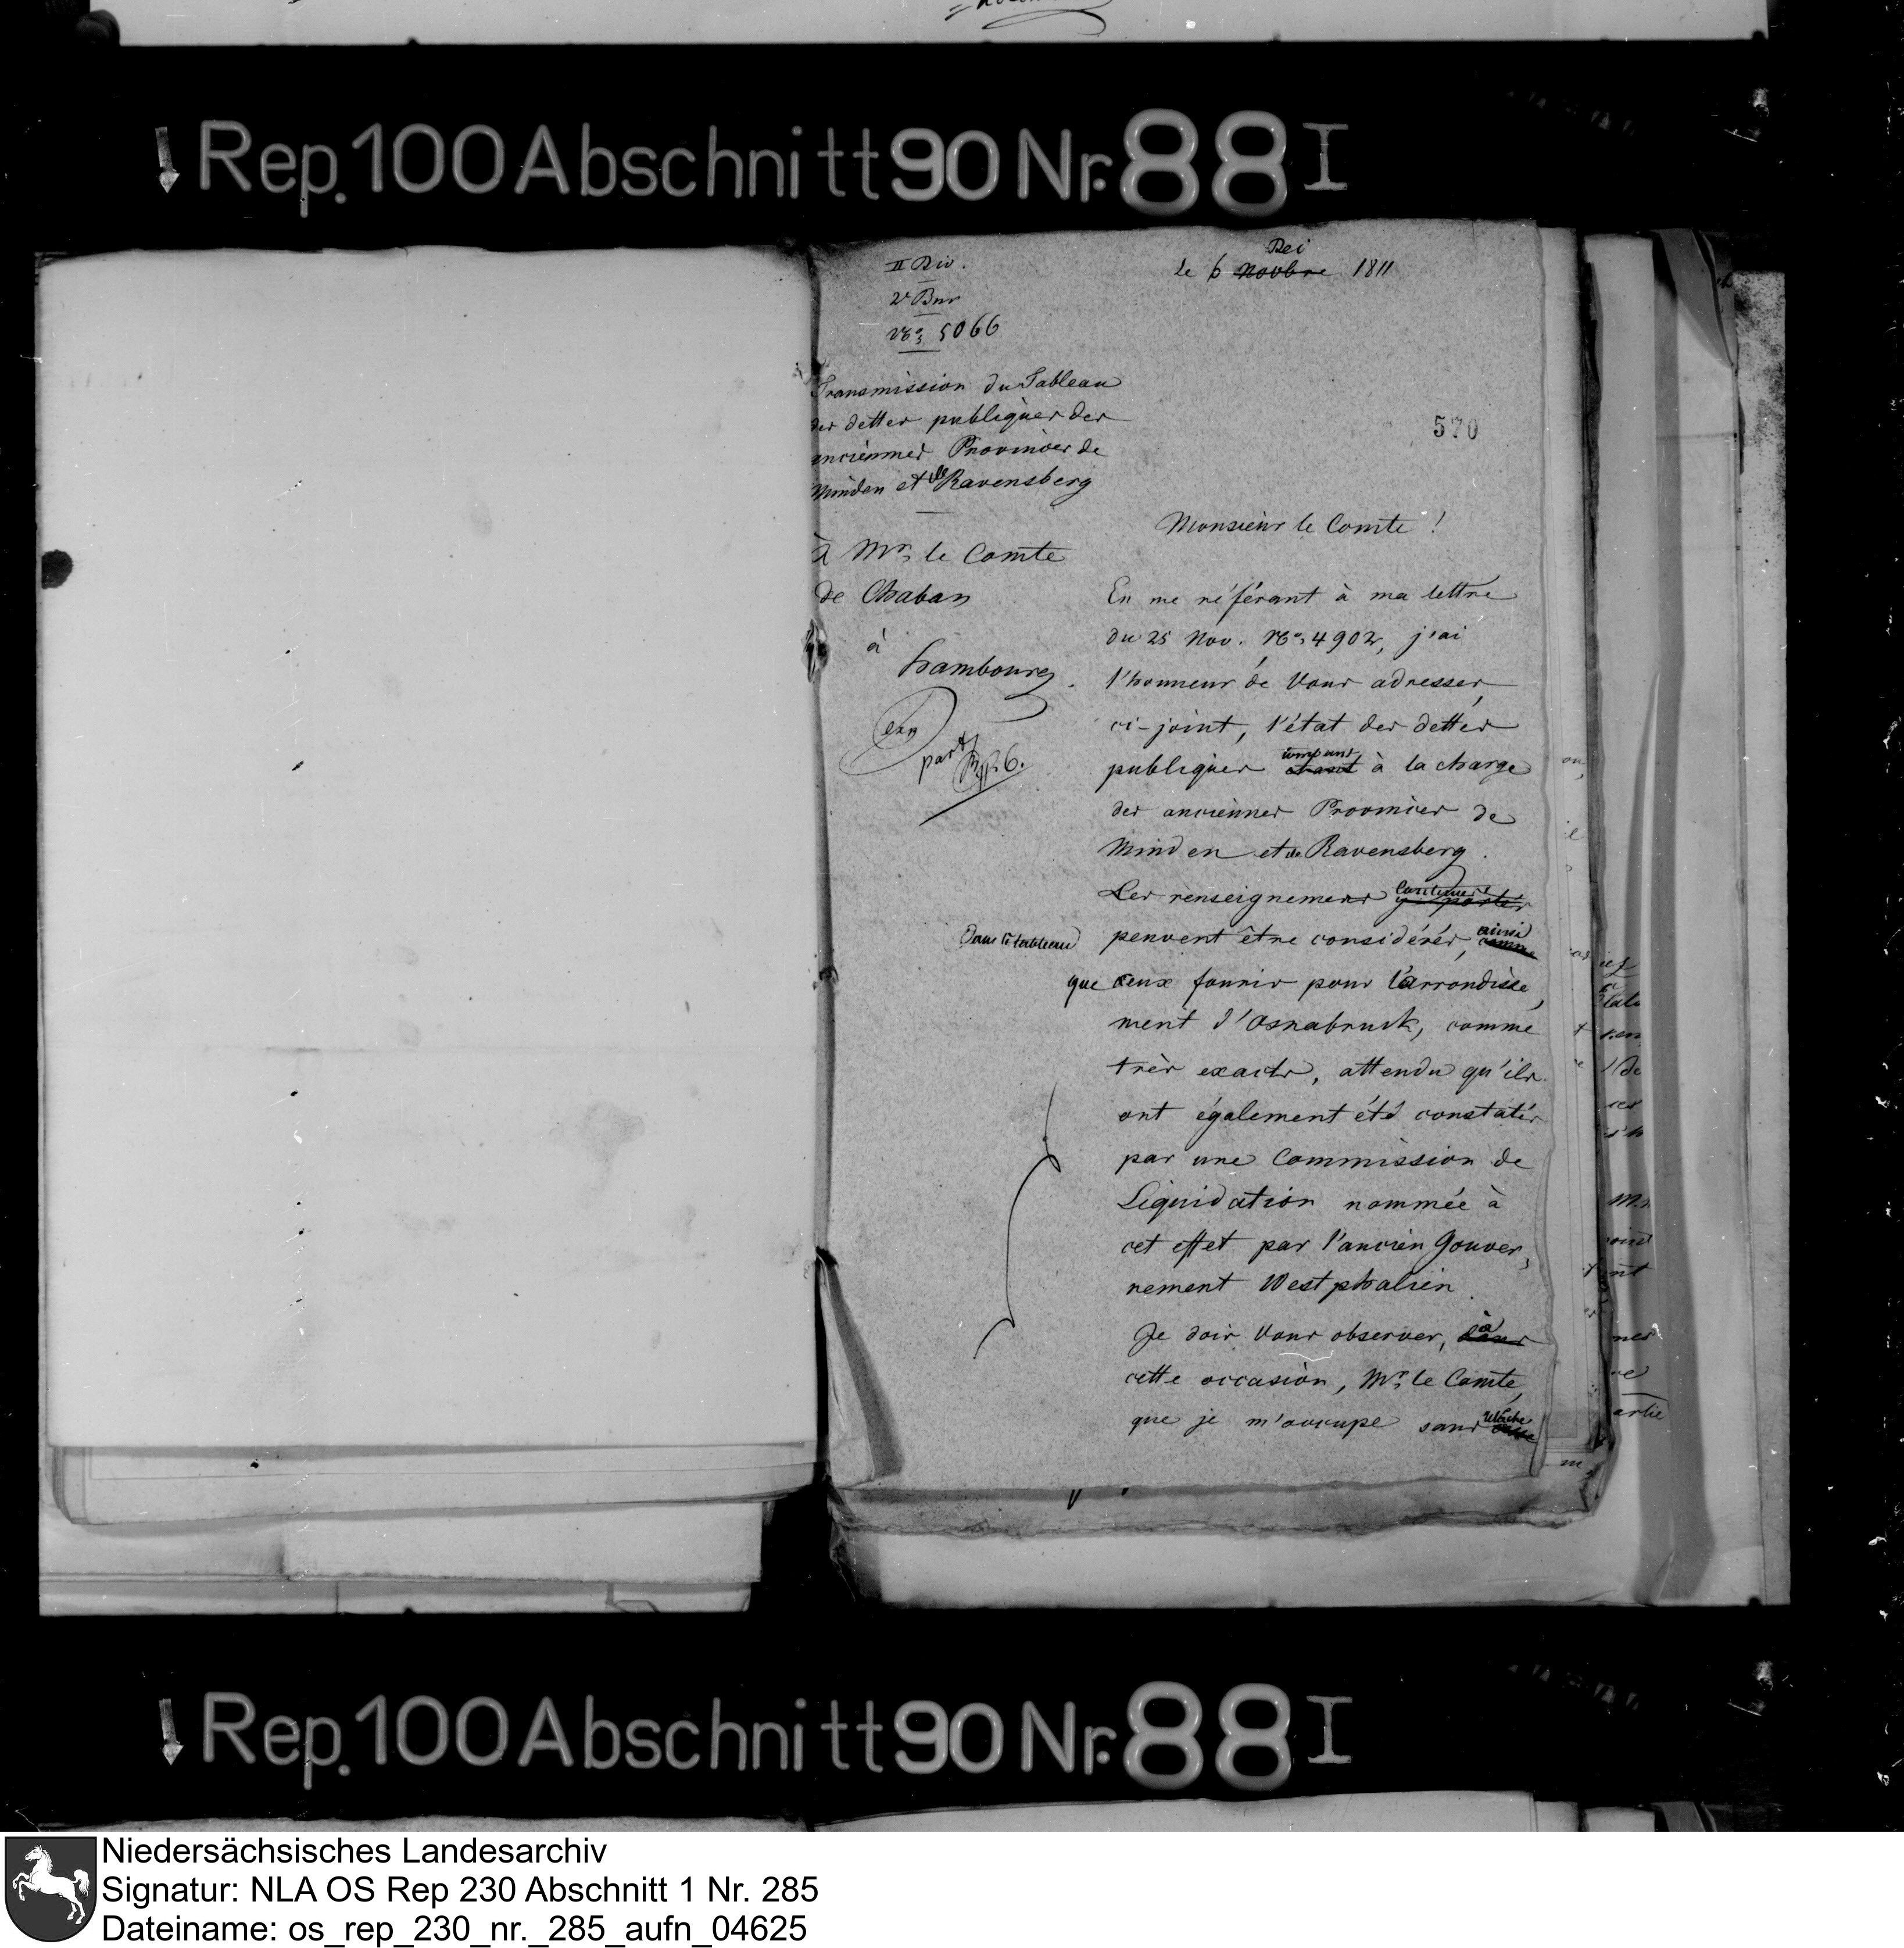 Rep. 100 Abschnitt 90 Nr. 88 I
II Div.
2e Bur
No. 5066
le 6 novbre Dei 1811
Transmission du Tableau
des dettes publiques des
anciennes Provinces de
Minden et de Ravensberg
570
à Mr. le Comte
de Chaban
à
hambourg.
exp
part
Monsieur le Comte !
En me référant à ma lettre
du 25 Nov. No. 4902, j'ai
l'honneur de Vous adresser,
ci-joint, l'état des dettes
publiques à la charge
des anciennes Provinces de
Minden et de Ravensberg.
Les renseignemens contenus
dans le tableau peuvent être considérés, ainsi comme
que ceux fournis pour l'arrondisse,
ment d'Osnabruck, comme
très exacts, attendu qu'ils
ont également été constatés
par une Commission de
Liquidation nommée à
cet effet par l'ancien Gouver,
nement Westphalien.
Je dois Vous observer, à dans
cette occasion, Mr. le Comte,
que je m'occupe sans relâche cesse
Rep. 100 Abschnitt 90 Nr. 88 I
Niedersächsisches Landesarchiv
Signatur: NLA OS Rep 230 Abschnitt 1 Nr. 285
Dateiname: os_rep_230_nr._285_aufn_04625